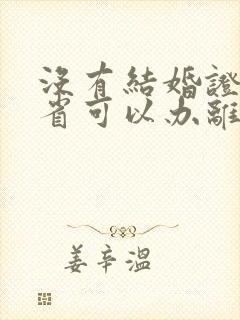 沒有結婚證
省可以办離
姜辛溫